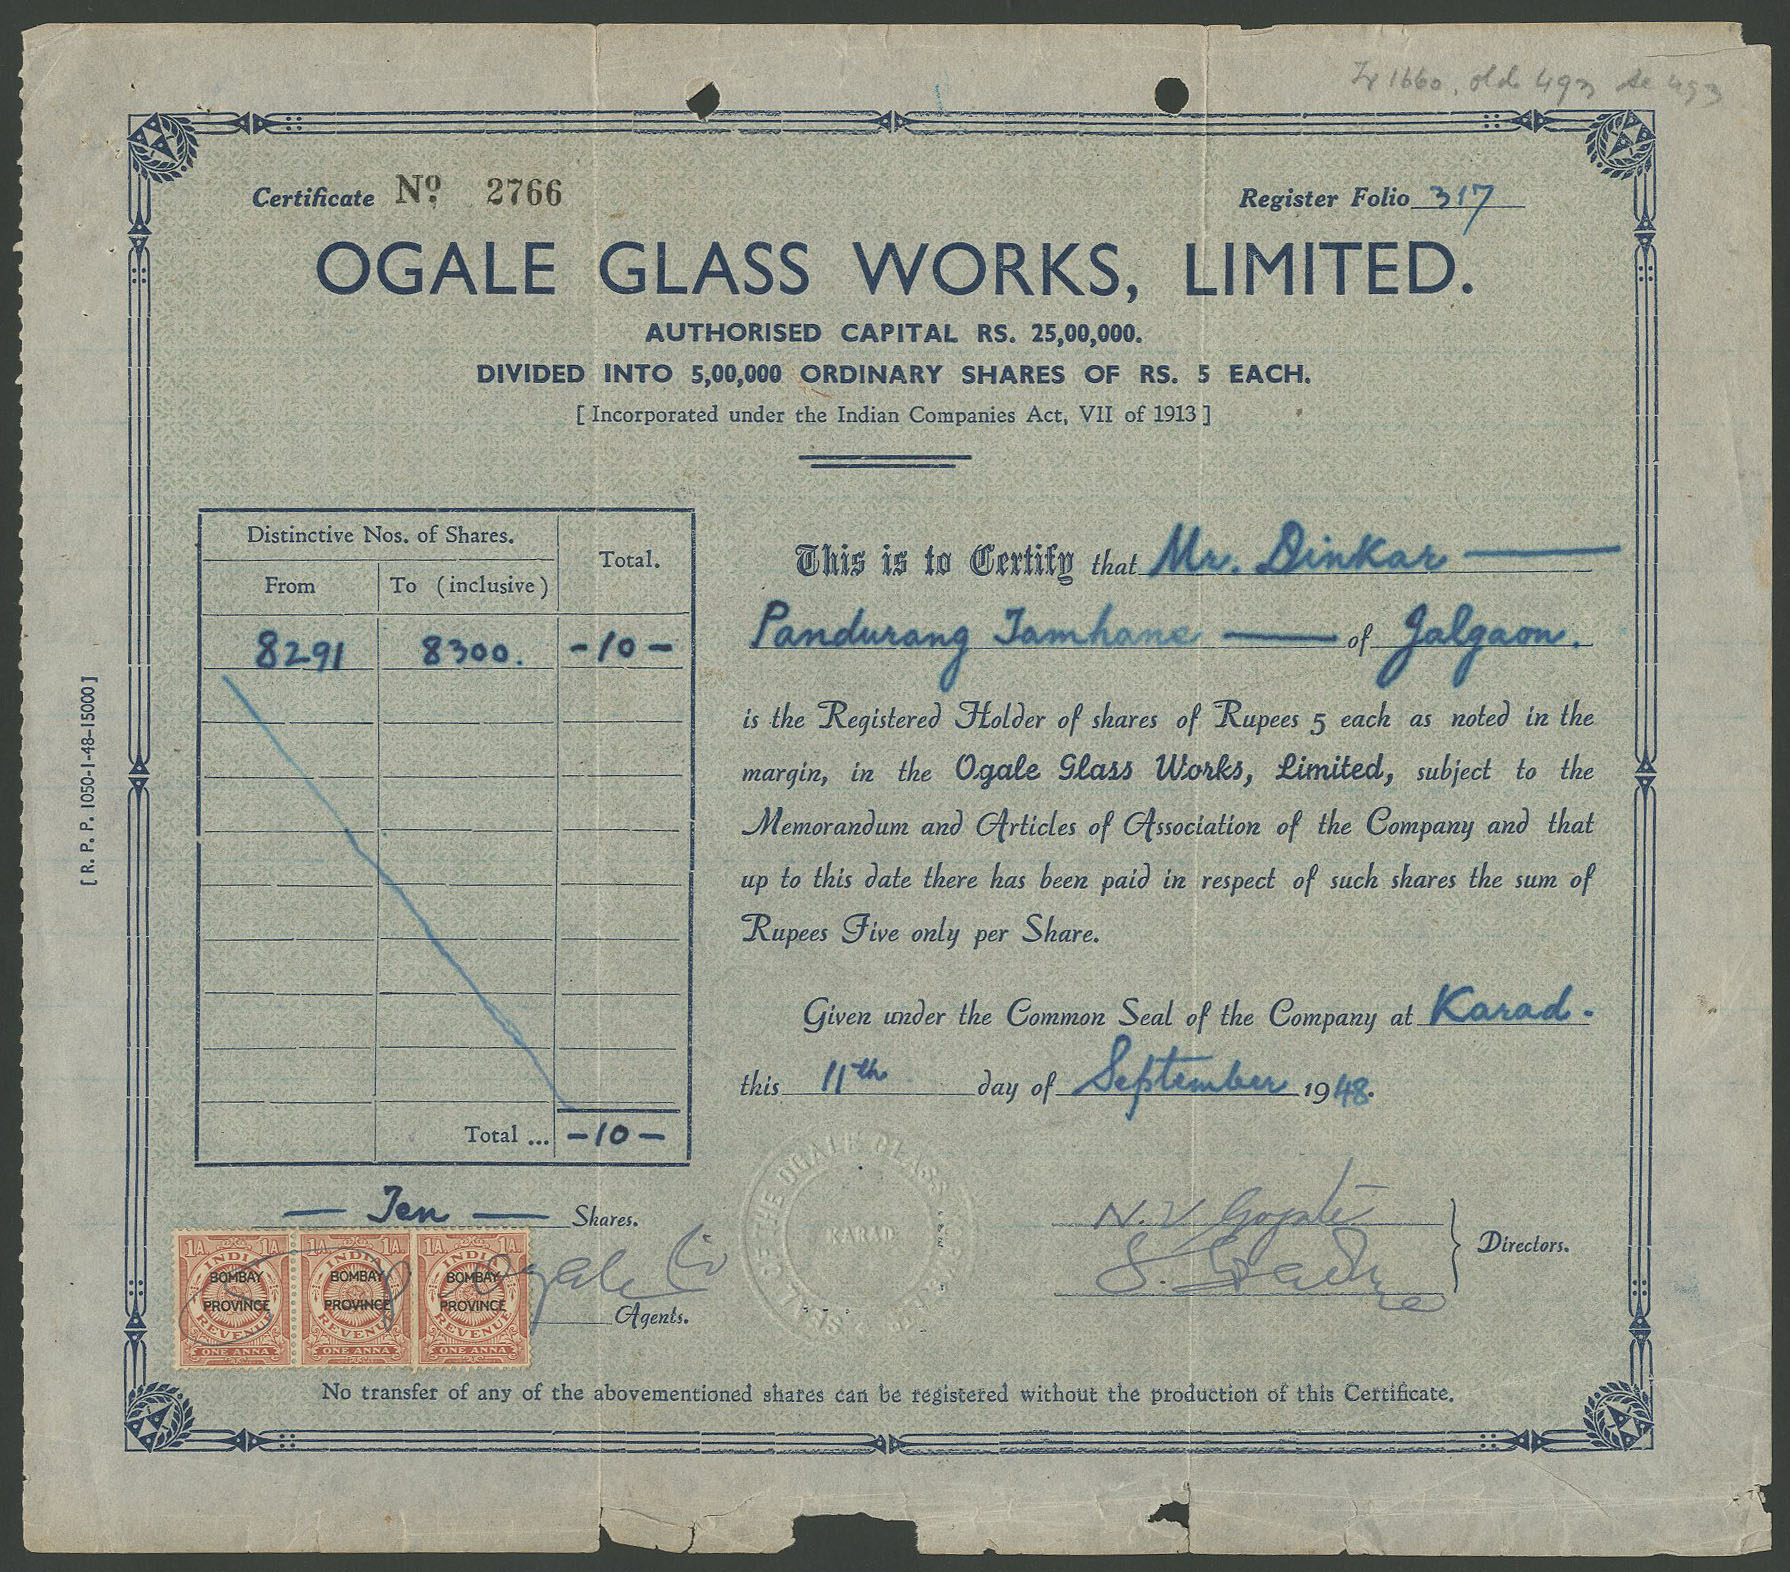 Tr 1660. old 493 de 493
Certificate Nº 2766
Register Folio 317
OGALE GLASS WORKS, LIMITED.
AUTHORISED CAPITAL RS. 25,00,000.
DIVIDED INTO 5,00,000 ORDINARY SHARES OF RS. 5 EACH.
[ Incorporated under the Indian Companies Act, VII of 1913 ]
Distinctive Nos. of Shares.
Total.
From
To (inclusive)
8291 8300. -10-
Total ... -10-
This is to Certify that Mr. Dinkar
Pandurang Tamhane of Jalgaon.
is the Registered Holder of shares of Rupees 5 each as noted in the
margin, in the Ogale Glass Works, Limited, subject to the
Memorandum and Articles of Association of the Company and that
up to this date there has been paid in respect of such shares the sum of
Rupees Five only per Share.
Given under the Common Seal of the Company at Karad.
this 11th day of September 1948.
Ten Shares.
Ogale Co
Agents.
THE OGALE GLASS
KARAD
N. V. Gogate
Directors.
1A. 1A. 1A. 1A. 1A. 1A.
INDIA INDIA INDIA
BOMBAY BOMBAY BOMBAY
PROVINCE PROVINCE PROVINCE
REVENUE REVENUE REVENUE
ONE ANNA ONE ANNA ONE ANNA
No transfer of any of the abovementioned shares can be registered without the production of this Certificate.
[ R. P. P. 1050-1-48-15000 ]